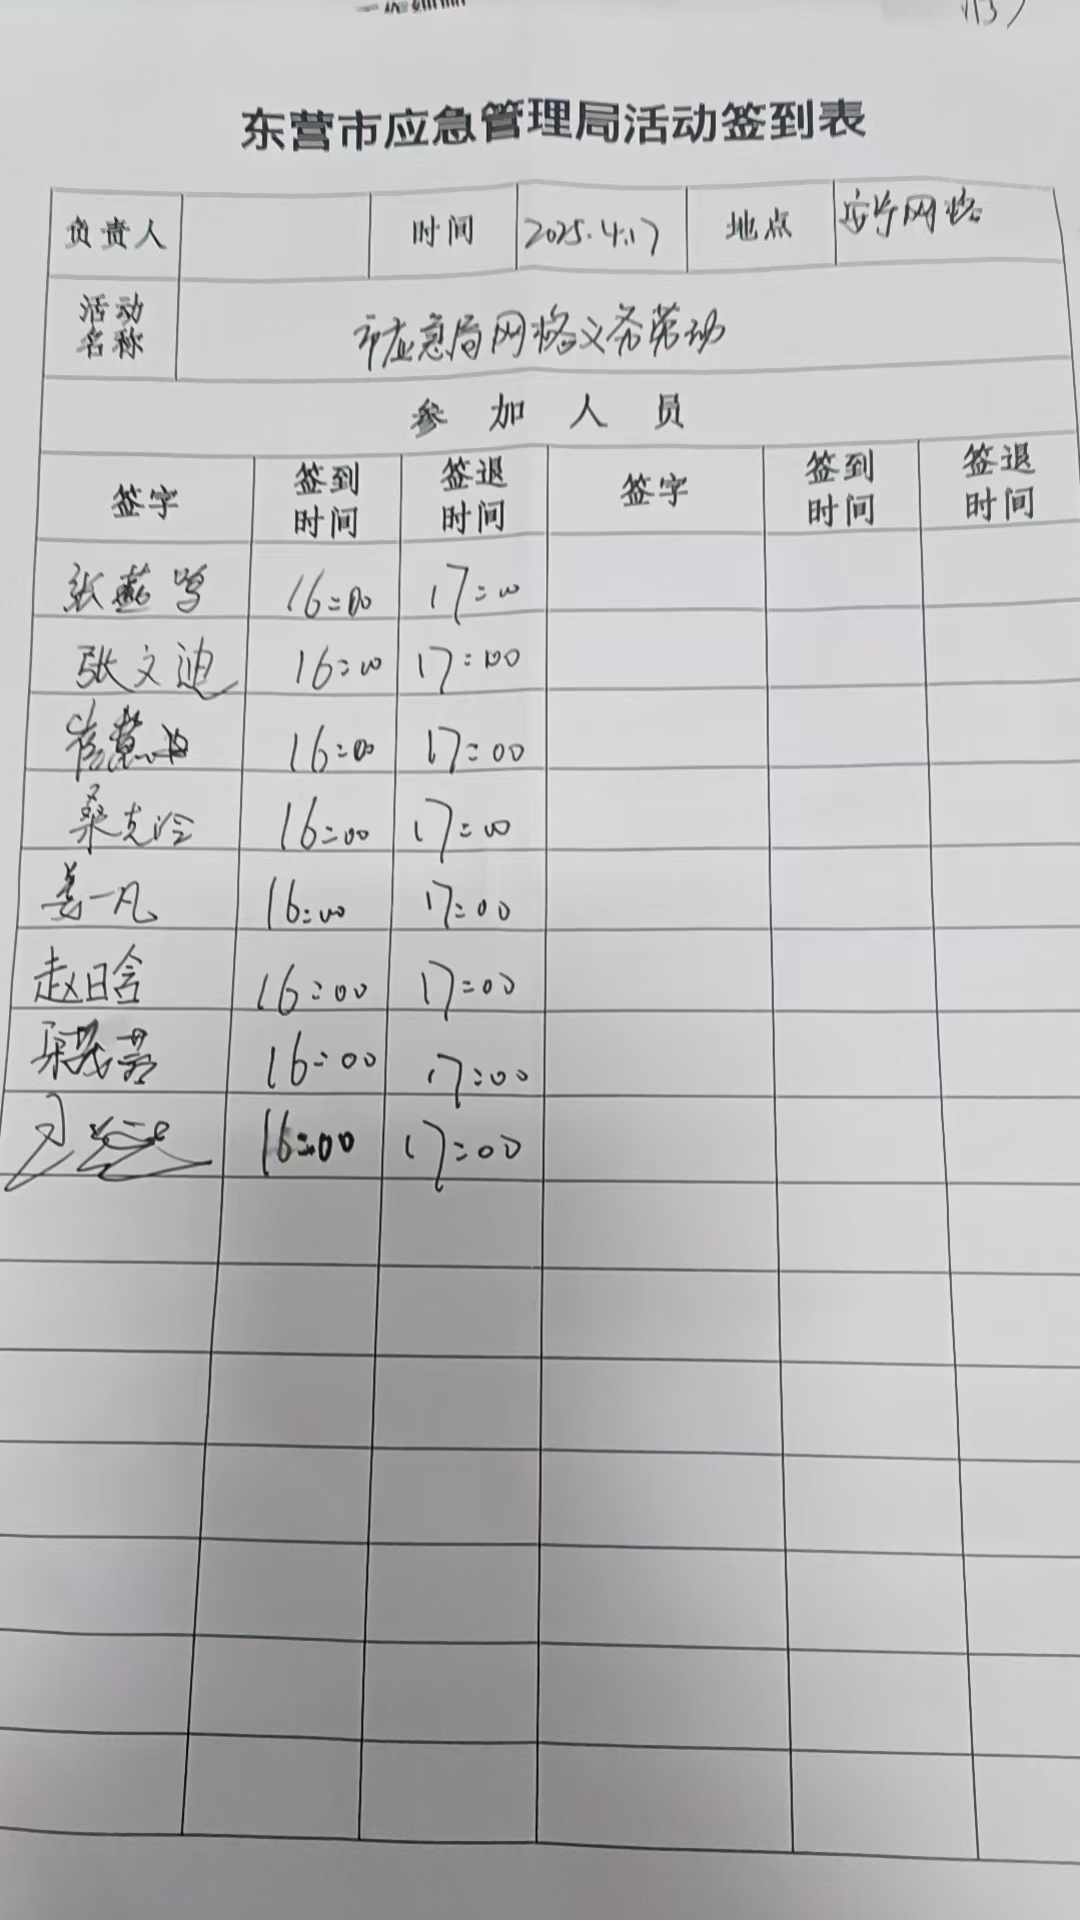 东营市应急管理局活动签到表
负责人 时间 2025.4.17 地点 网格
活动名称 市应急局网格义务劳动
参加人员
签字 签到时间 签退时间 签字 签到时间 签退时间
张燕 16:00 17:00
张文迪 16:00 17:00
崔慧 16:00 17:00
桑克 16:00 17:00
姜一凡 16:00 17:00
赵日含 16:00 17:00
梁茂 16:00 17:00
16:00 17:00